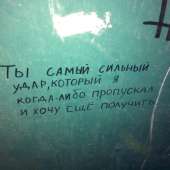 ТЫ САМЫЙ СИЛЬНЫЙ
УДАР, КОТОРЫЙ Я
КОГДА-ЛИБО ПРОПУСКАЛ
И ХОЧУ ЕЩЁ ПОЛУЧИТЬ